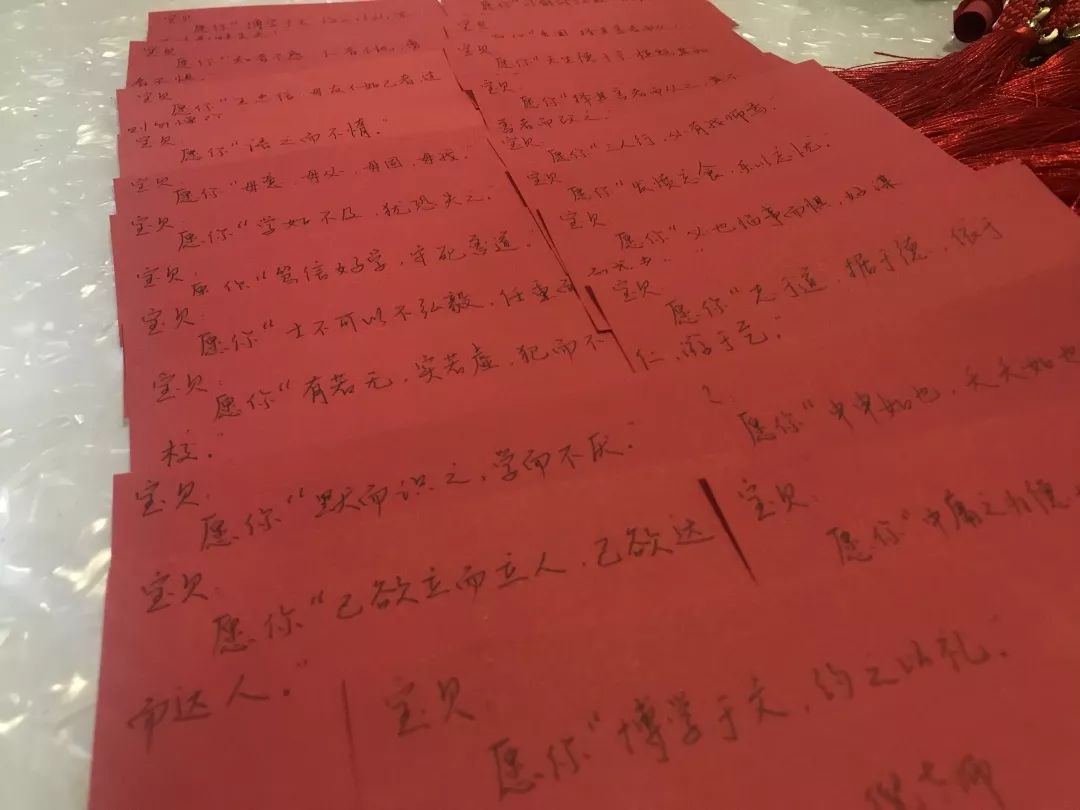 宝贝
愿你“博学于文
宝贝
愿你“知者不惑，仁者不忧，勇
者不惧。
宝贝
愿你“主忠信，毋友不如己者，过
则勿惮改
宝贝
愿你“语之而不惰。”
宝贝
愿你“毋意，毋必，毋固，毋我。”
宝贝
愿你“学如不及，犹恐失之。”
宝贝：
愿你“笃信好学，守死善道。”
宝贝：
愿你“士不可以不弘毅，任重而
宝贝：
愿你“有若无，实若虚，犯而不
校。”
宝贝：
愿你“默而识之，学而不厌。”
宝贝：
愿你“己欲立而立人，己欲达
而达人。”
宝贝
愿你“天生德于予
宝贝
愿你“择其善者而从之，其不
善者而改之。
宝贝
愿你“三人行，必有我师焉。
宝贝
愿你“发愤忘食，乐以忘忧。
宝贝
愿你“必也临事而惧，好谋
而成者。”
宝贝
愿你“志于道，据于德，依于
仁，游于艺。”
愿你“申申如也，夭夭如也
宝贝：
愿你“中庸之为德
宝贝：
愿你“博学于文，约之以礼。”